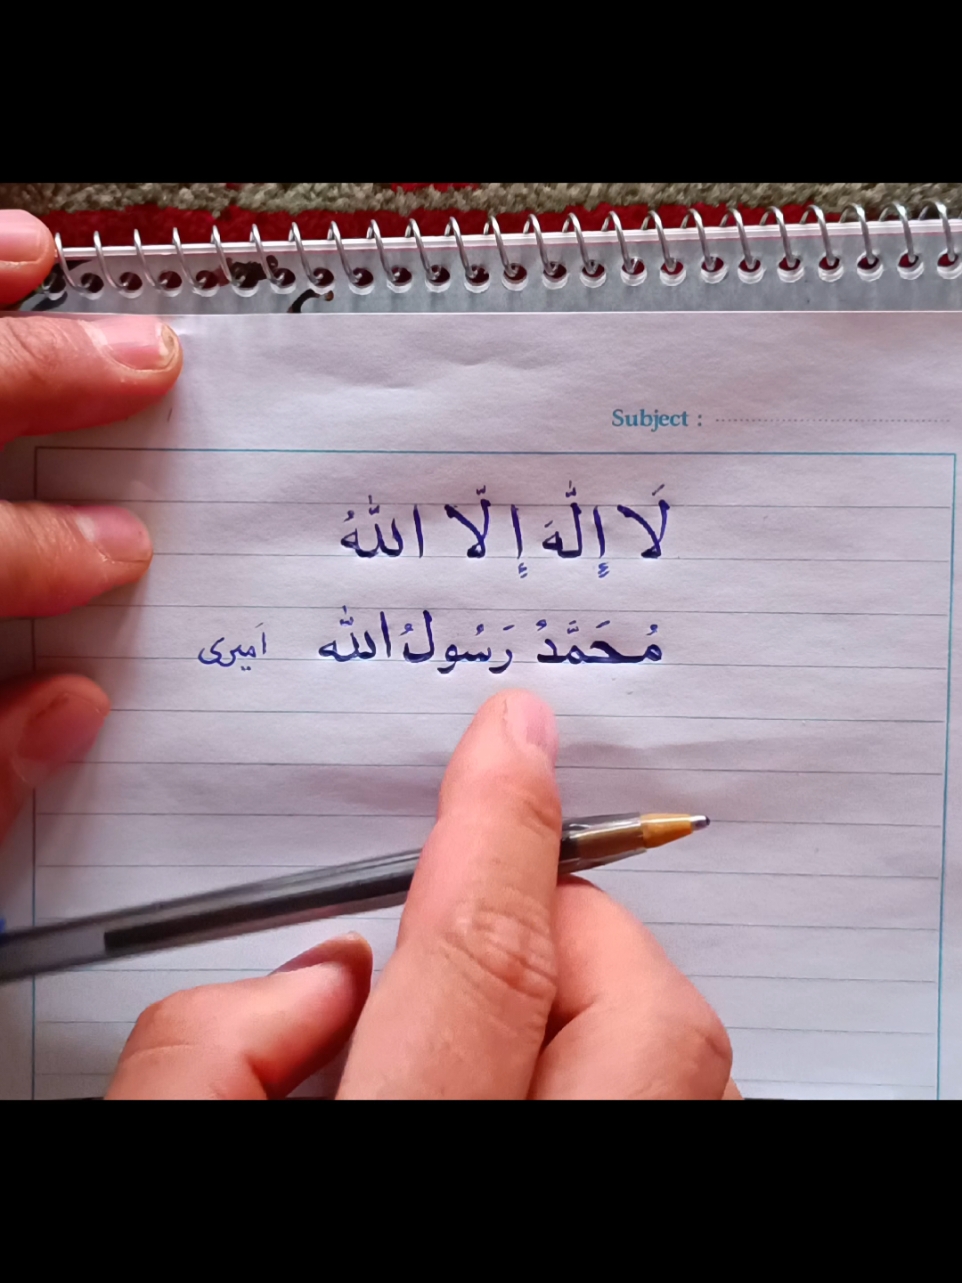 Subject :
لَا إِلَّهَ إِلَّا اللّٰهُ
مُحَمَّدُ رَسُولُ اللّٰه اَمیری